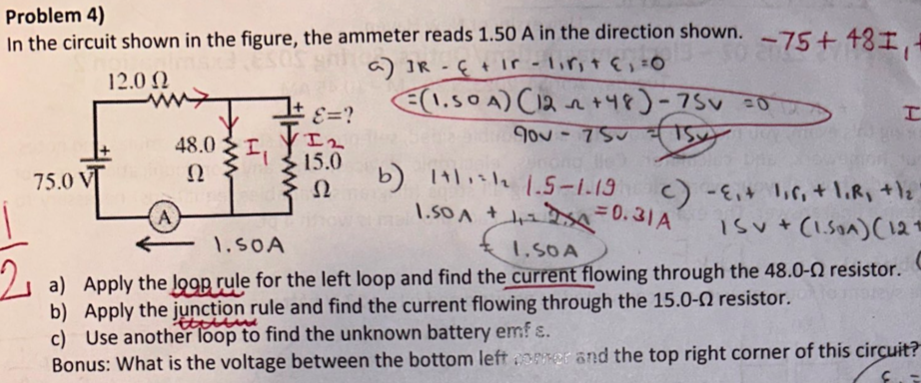 Problem 4)
In the circuit shown in the figure, the ammeter reads 1.50 A in the direction shown. -75 + 48I₁
a) IR - ε + Ir - I₁r₁ + ε₁ = 0
12.0 Ω
= (1.50A)(12Ω+48) - 75V = 0
+ ε=?
90V - 75V = 15V
48.0 Ω I₁
I₂
15.0 Ω
75.0 V +
b) 1+1₁=1₂
1.5-1.19
=0.31A
1.50A + 1₁=
1.50A
c) -ε₁ + I₁r₁ + I₁R₁ + I₂
15V + (1.50A)(12
A
1.50A
1/2
a) Apply the loop rule for the left loop and find the current flowing through the 48.0-Ω resistor.
b) Apply the junction rule and find the current flowing through the 15.0-Ω resistor.
c) Use another loop to find the unknown battery emf ε.
Bonus: What is the voltage between the bottom left and the top right corner of this circuit?